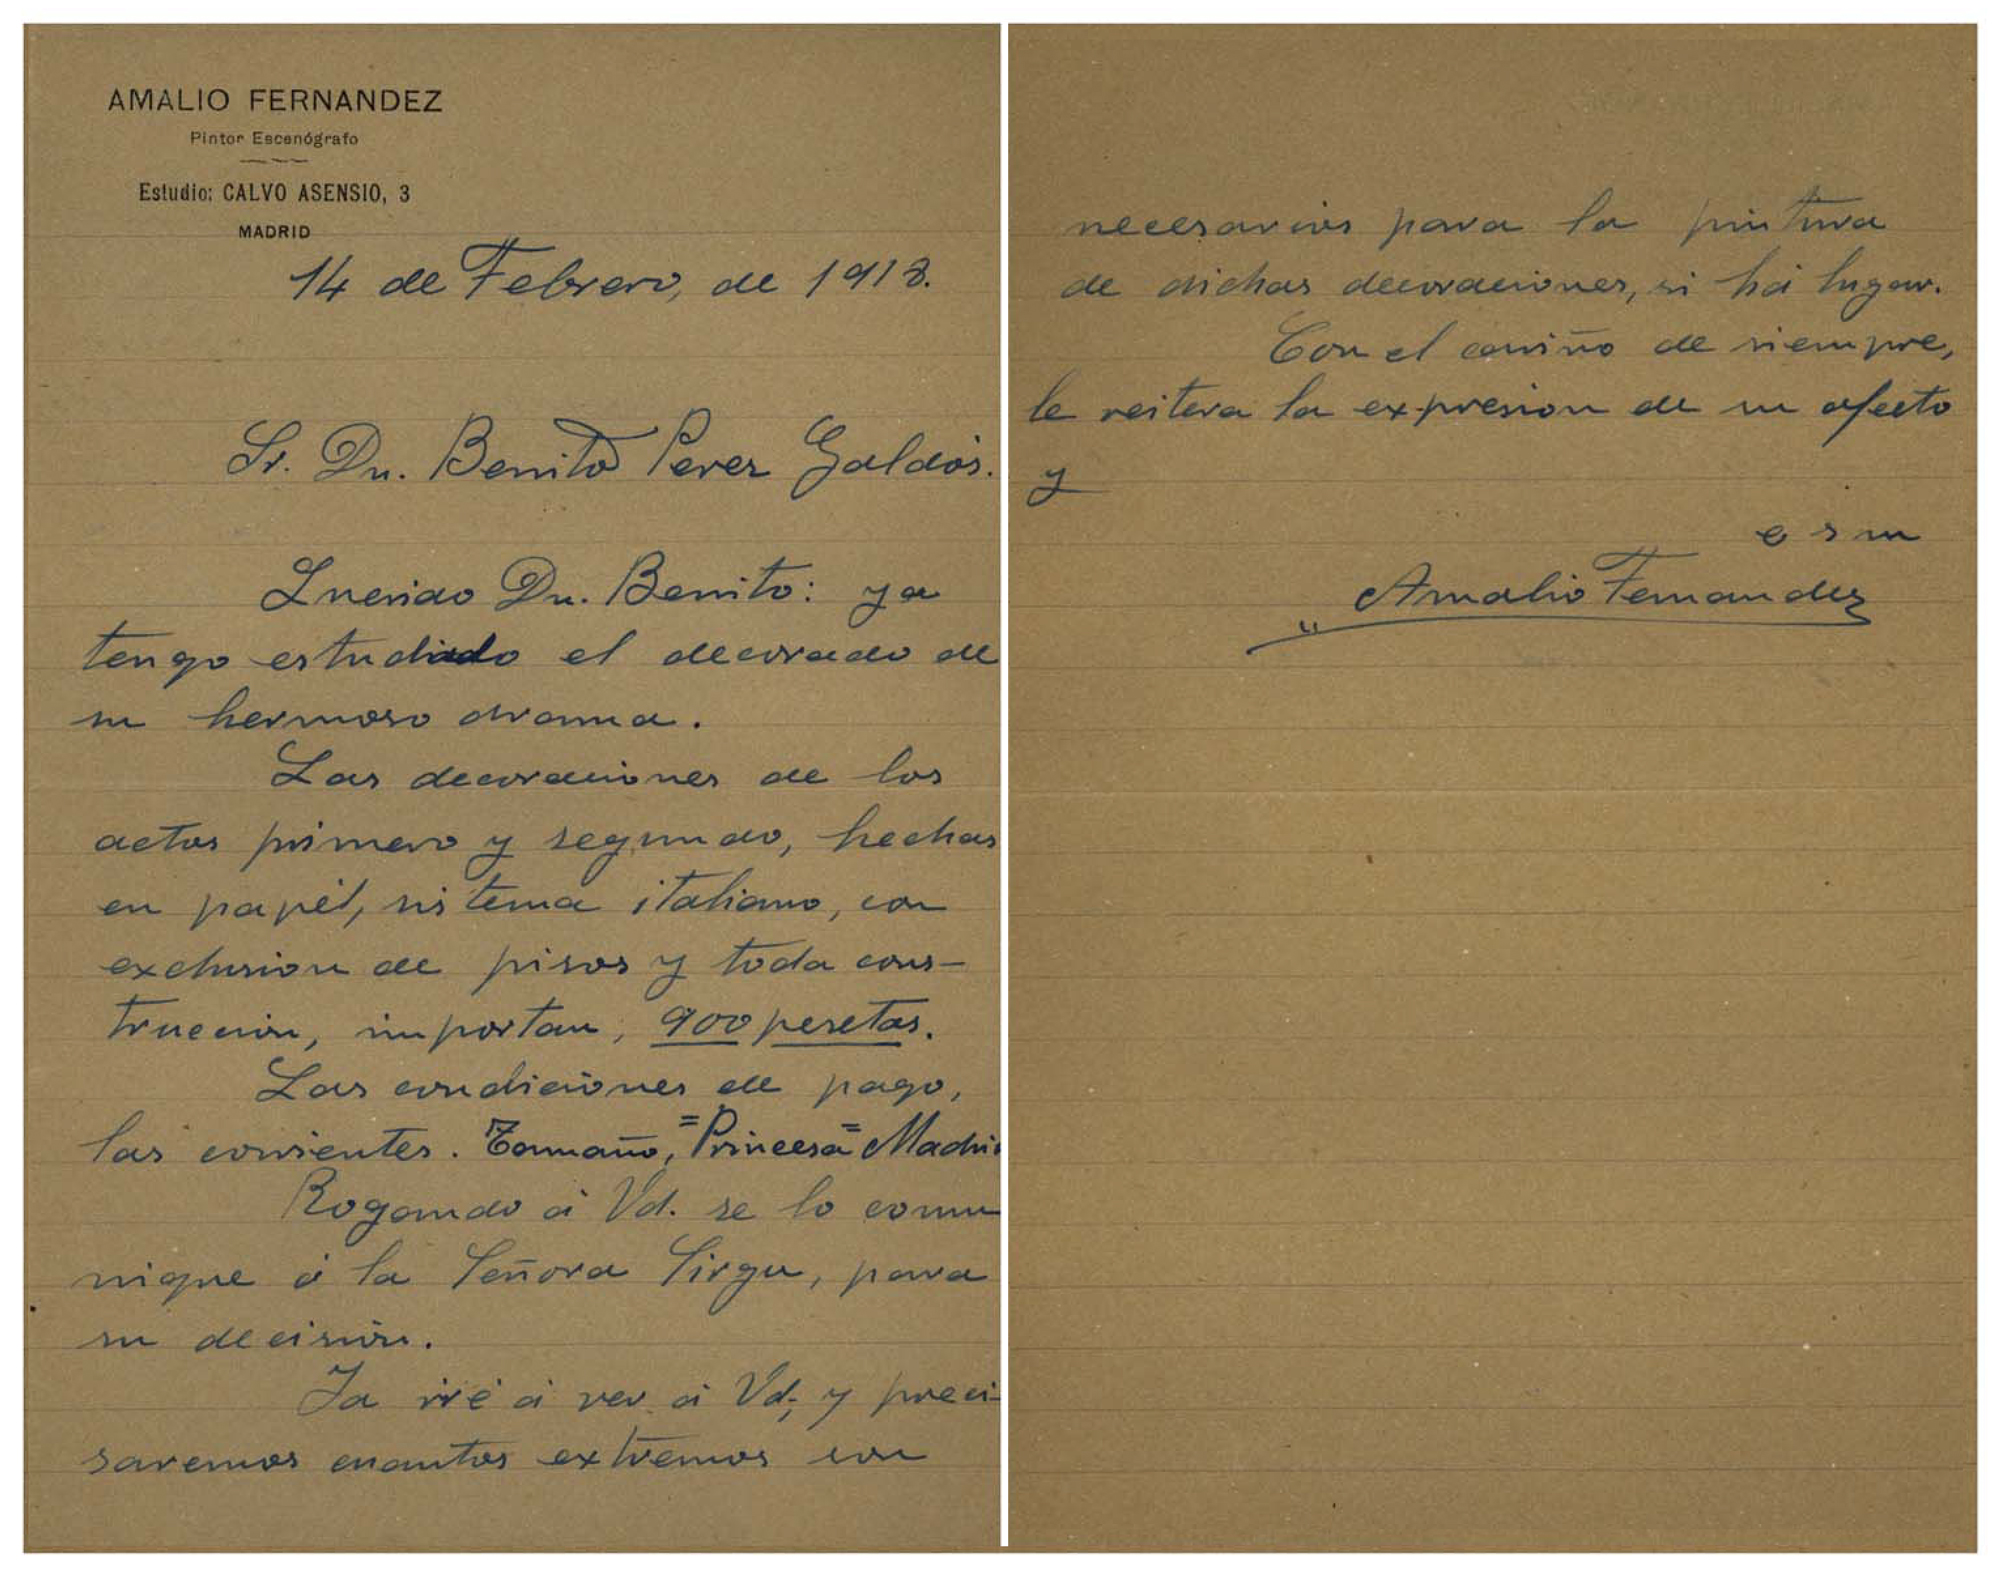 AMALIO FERNANDEZ
Pintor Escenógrafo
Estudio: CALVO ASENSIO, 3
MADRID
14 de Febrero, de 1918.
Sr. Dn. Benito Perez Galdós.
Querido Dn. Benito: ya
tengo estudiado el decorado de
su hermoso drama.
Las decoraciones de los
actos primero y segundo, hechas
en papél, sistema italiano, con
exclusion de pisos y toda cons-
trucción, importan, 900 pesetas.
Las condiciones de pago,
las corrientes. Tamaño, "Princesa" Madri
Rogando á Vd. se lo comu
nique á la Señora Sirgu, para
su decisión.
Ya iré á ver á Vd; y preci-
saremos cuantos extremos son
necesarios para la pintura
de dichas decoraciones, si há lugar.
Con el cariño de siempre,
le reitera la expresion de su afecto
y
e s m
Amalio Fernandez